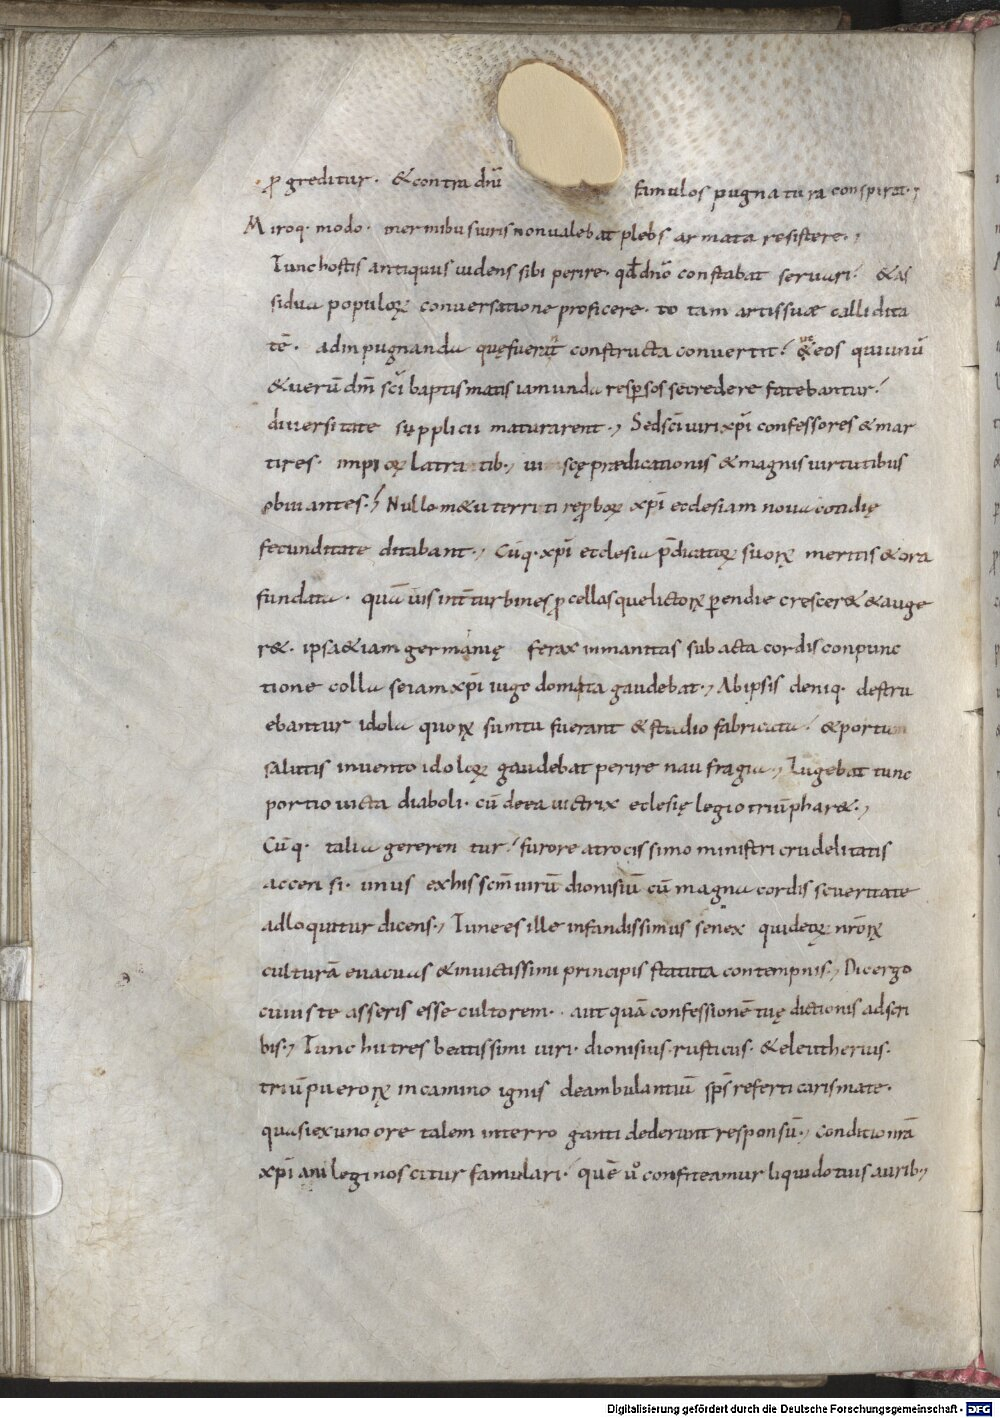 ꝓgreditur· &contra dnī famulos pugnatura conspirat·,
Miroq· modo· inermibus uiris nonualebat plebs armata resistere·,
Tunc hostis antiquus uidens sibi perire· qd dn̄o constabat seruari! &as
sidua populoꝝ conuersatione proficere· totam artis suæ callidita
tē· ad inpugnanda quę fuerat constructa conuertit! & eos qui unū
& uerū dm̄ sc̄i baptismatis iam unda resꝑsos se credere fatebantur!
diuersitate supplicii maturarent·, Sed sc̄i uiri xp̄i confessores & mar
tires· impioꝝ latratib·, ui scę prædicationis & magnis uirtutibus
obuiantes·! Nullo m&u territi reꝓboꝝ xp̄i ecclesiam noua cotidię
fecunditate ditabant·, Cūq· xp̄i ecclesia p̄dicatoꝝ suoꝝ meritis & ora
fundata· quā int̄ turbines ꝓcellasque lictoꝝ ꝑendie crescer& & auge
r&· ipsa &iam germanię ferax inmanitas subacta cordis conpunc
tione colla se iam xp̄i iugo domita gaudebat·, Ab ipsis deniq· destru
ebantur idola quoꝝ sumtu fuerant & studio fabricata! & portu
salutis inuento idoloꝝ gaudebat perire naufragia·, Lugebat tunc
portio uicta diaboli· cū de ea uictrix eclesię legio triūphar&·,
Cūq· talia gererentur! furore atrocissimo ministri crudelitatis
accensi· unus ex his scm̄ uirū dionisiū cū magna cordis seueritate
adloquitur dicens·, Tune es ille infandissimus senex qui deoꝝ nr̄oꝝ
culturā euacuas & inuictissimi principis statuta contempnis·, Dic ergo
cuius te asseris esse cultorem· aut quā confessionē tuę dictionis adscri
bis·, Tunc hii tres beatissimi uiri· dionisius· rusticus· & eleutherius·
triū pueroꝝ in camino ignis deambulantiū sp̄s referti carismate·
quasi ex uno ore talem interroganti dederunt responsū·, Conditionā
xp̄iani legi noscitur famulari! quē ū confiteamur liquido tuis aurib·,
Digitalisierung gefördert durch die Deutsche Forschungsgemeinschaft - DFG